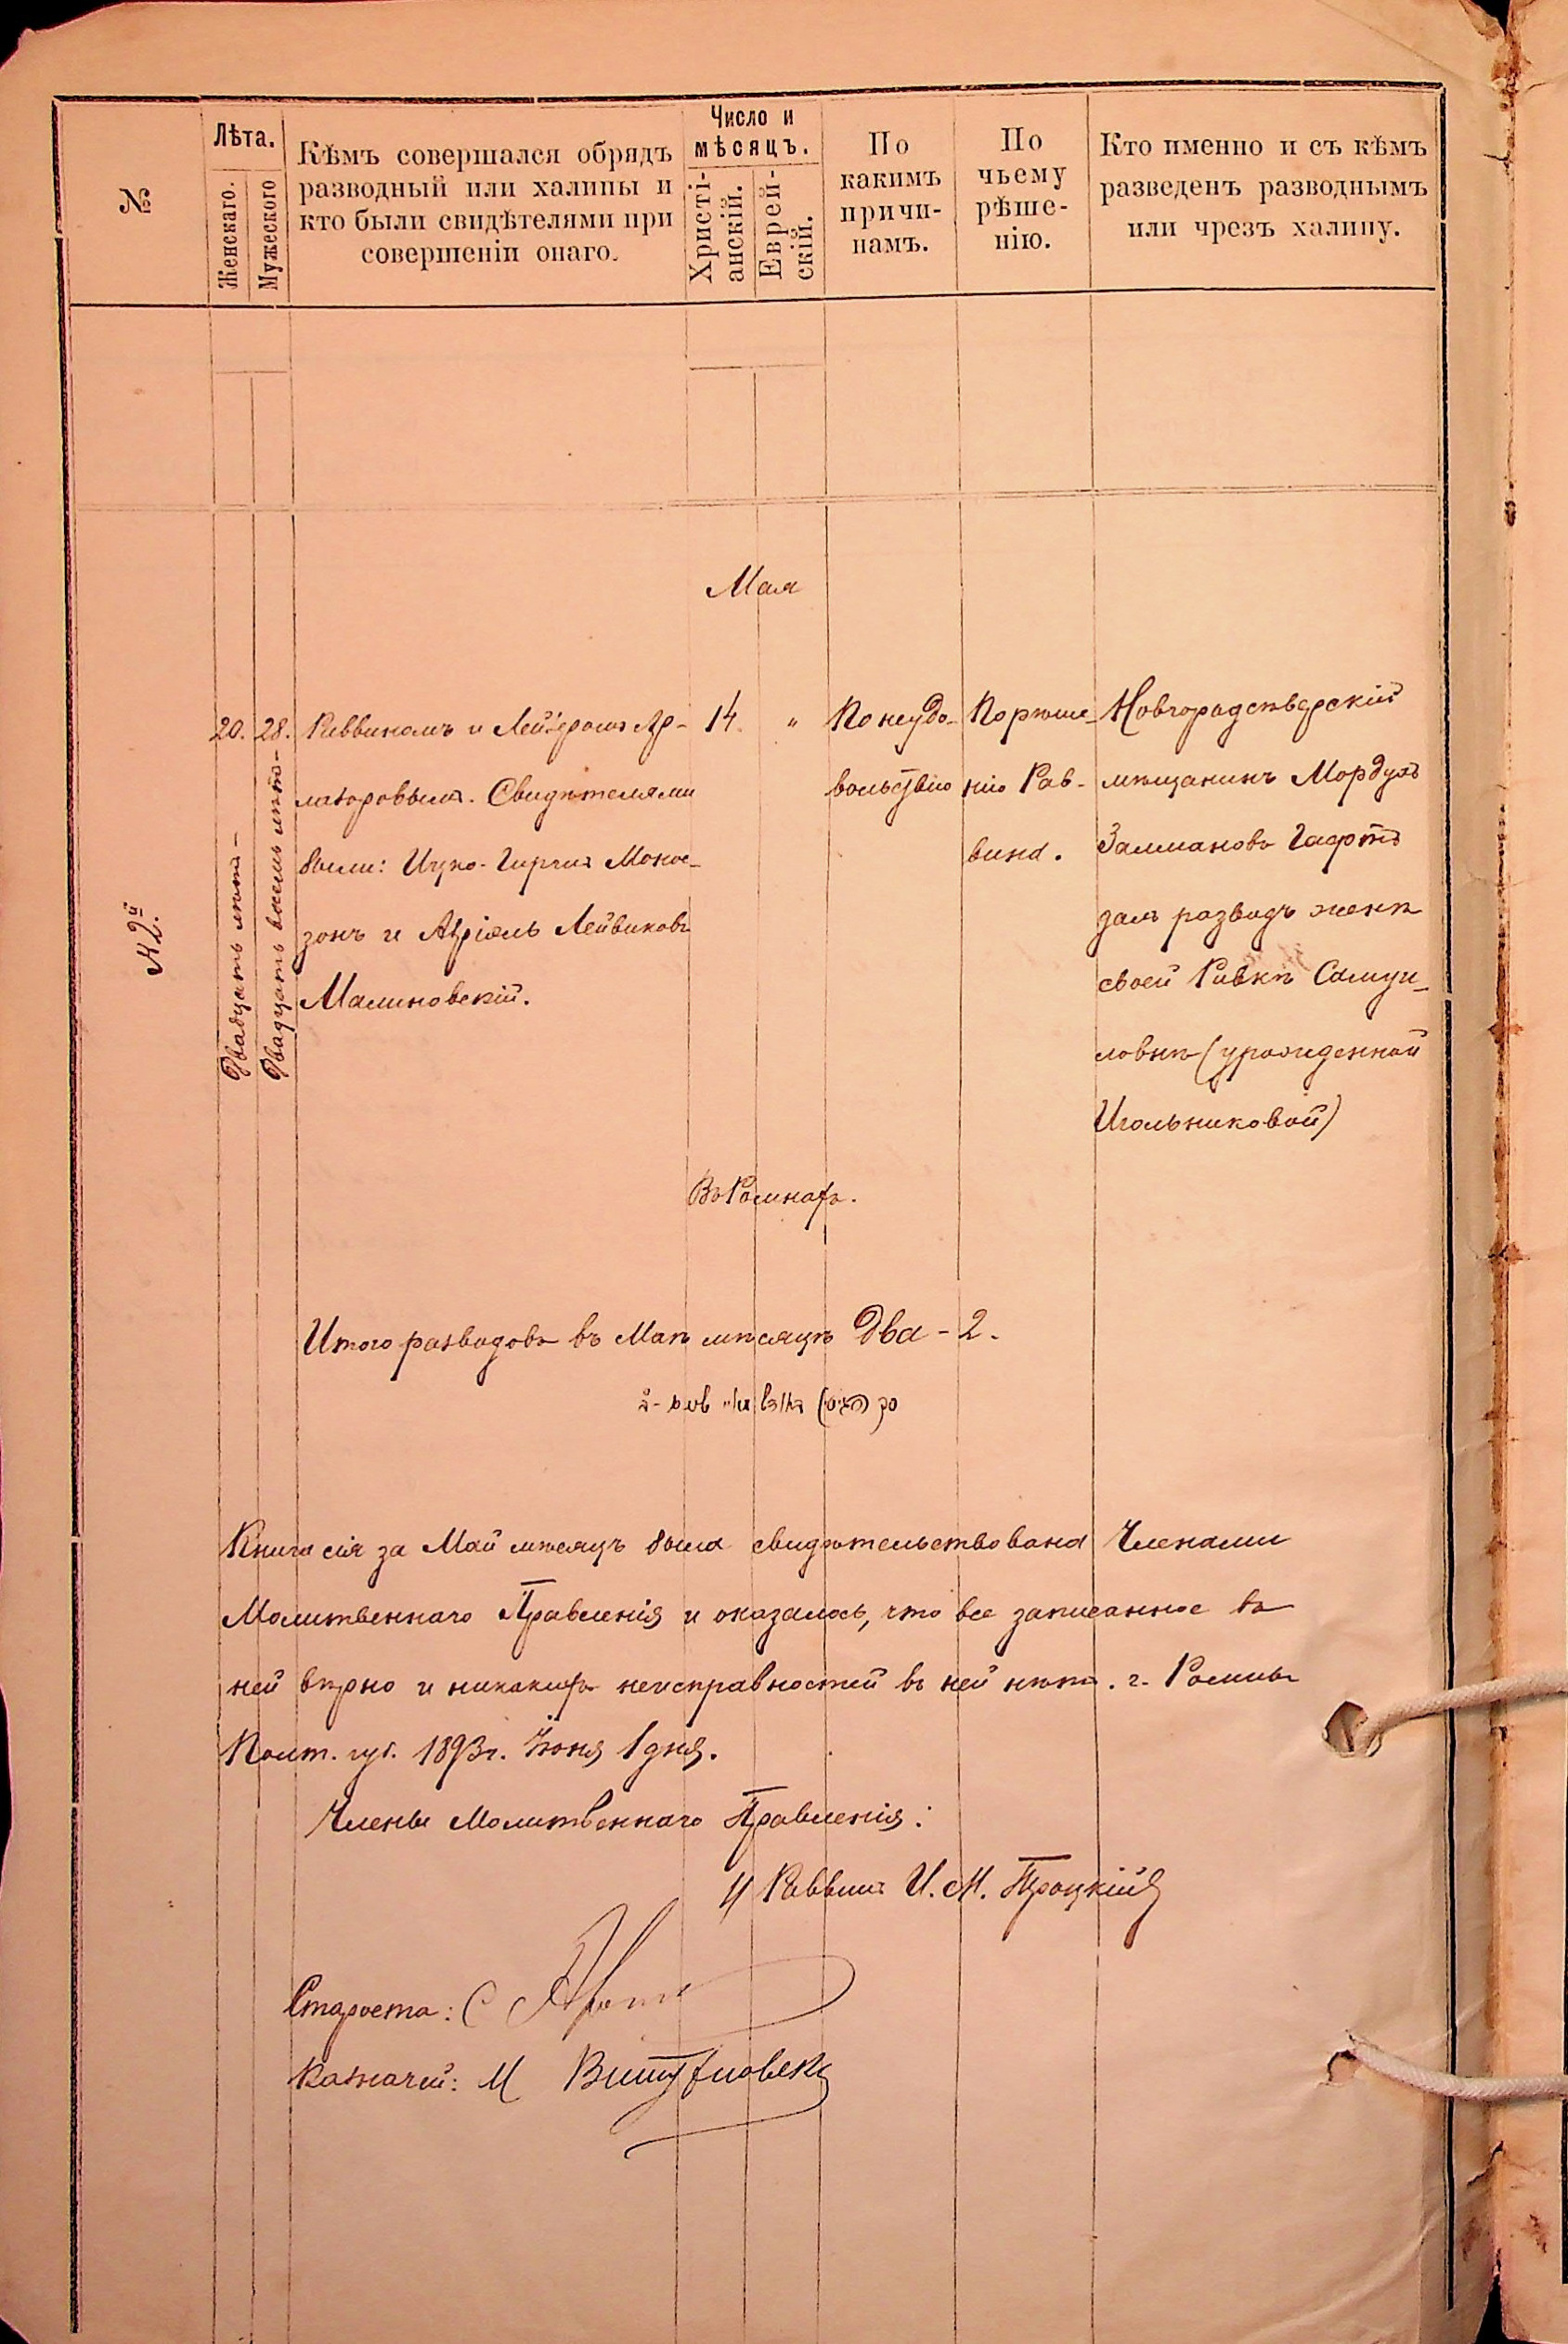 №
Лѣта.
Женскаго.
Мужескаго
Кѣмъ совершался обрядъ
разводный или халицы и
кто были свидѣтелями при
совершеніи онаго.
Число и
мѣсяцъ.
Христі-
анскій.
Еврей-
скій.
По
какимъ
причи-
намъ.
По
чьему
рѣше-
нію.
Кто именно и съ кѣмъ
разведенъ разводнымъ
или чрезъ халицу.
Мая
№ 2й.
20.
Двадцать лѣтъ-
28.
Двадцать восемь лѣтъ-
Раввиномъ и
Свидѣтелями
были: Ицко-Гиршъ Монос-
зонъ и Абріолъ Лейвиковъ
Малиновскій.
14 "
По неудо-
вольствію
По рѣше-
нію Рав-
вина.
Новгородсѣверскій
мѣщанинъ Мордухъ
Залмановъ
далъ разводъ женѣ
своей Ривкѣ Самуи-
ловнѣ (урожденной
Игольниковой)
Въ Ромнахъ.
Итого разводовъ въ Маѣ мѣсяцѣ два - 2.
Книга сія за Май мѣсяцъ была свидѣтельствована Членами
Молитвеннаго Правленія и оказалось, что все записанное въ
ней вѣрно и никакихъ неисправностей въ ней нѣтъ. г. Ромны
Полт. губ. 1893 г. Іюня 1 дня.
Члены Молитвеннаго Правленія:
Раввинъ И. М. Троцкій
Староста: С
Казначей: М